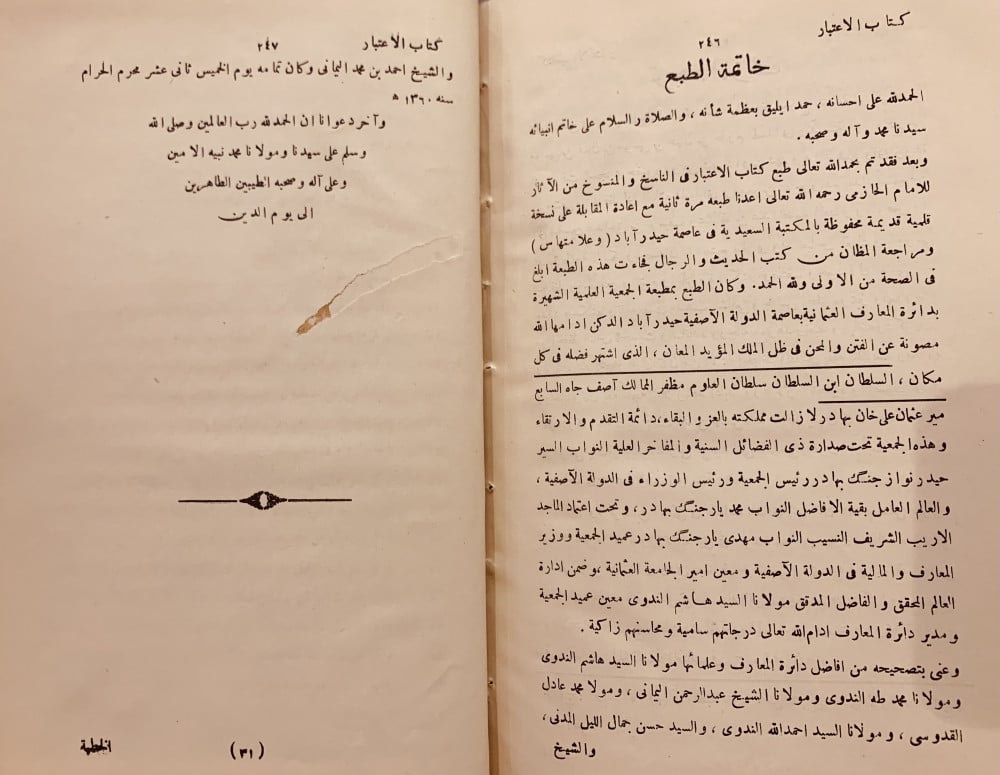 كتاب الاعتبار
٢٤٦
خاتمة الطبع
الحمدلله على احسانه ، حمدا يليق بعظمة شأنه ، والصلاة والسلام على خاتم انبيائه
سيدنا محمد وآله وصحبه .
وبعد فقد تم بحمدالله تعالى طبع كتاب الاعتبار فى الناسخ والمنسوخ من الآثار
للامام الحازمى رحمه الله تعالى اعدنا طبعه مرة ثانية مع اعادة المقابلة على نسخة
قلمية قديمة محفوظة بالمكتبة السعيدية فى عاصمة حيدرآباد ( وعلامتها س )
ومراجعة المظان من كتب الحديث والرجال فجاءت هذه الطبعة ابلغ
فى الصحة من الاولى ولله الحمد. وكان الطبع بمطبعة الجمعية العلمية الشهيرة
بدائرة المعارف العثمانية بعاصمة الدولة الآصفية حيدرآباد الدكن ادامها الله
مصونة عن الفتن والمحن فى ظل الملك المؤيد المعان ، الذى اشتهر فضله فى كل
مكان ، السلطان ابن السلطان سلطان العلوم مظفر الممالك آصف جاه السابع
مير عثمان على خان بهادر لا زالت مملكته بالعز والبقاء ، دائمة التقدم والارتقاء
وهذه الجمعية تحت صدارة ذى الفضائل السنية والمفاخر العلية النواب السير
حيدر نواز جنگ بهادر رئيس الجمعية ورئيس الوزراء فى الدولة الآصفية ،
والعالم العامل بقية الافاضل النواب محمد يار جنگ بهادر ، وتحت اعتماد الماجد
الاريب الشريف النسيب النواب مهدى يار جنگ بهادر عميد الجمعية ووزير
المعارف والمالية فى الدولة الآصفية ومعين امير الجامعة العثمانية ، وضمن ادارة
العالم المحقق والفاضل المدقق مولانا السيد هاشم الندوى معين عميد الجمعية
ومدير دائرة المعارف ادام الله تعالى درجاتهم سامية ومحاسنهم زاكية .
وعنى بتصحيحه من افاضل دائرة المعارف وعلمائها مولانا السيد هاشم الندوى
ومولانا محمد طه الندوى ومولانا الشيخ عبدالرحمن اليمانى ، ومولا محمد عادل
القدوسى ، ومولانا السيد احمدالله الندوى ، والسيد حسن جمال الليل المدنى ،
والشيخ
كتاب الاعتبار
٢٤٧
والشيخ احمد بن محمد اليمانى وكان تمامه يوم الخميس ثانى عشر محرم الحرام
سنه ١٣٦٠ ه
وآخر دعوانا ان الحمدلله رب العالمين وصلى الله
وسلم على سيدنا ومولانا محمد نبيه الامين
وعلى آله وصحبه الطيبين الطاهرين
الى يوم الدين
(٣١)
الخطبة